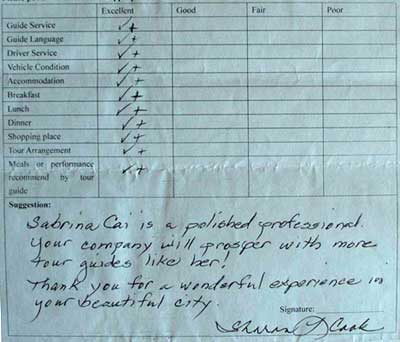 Excellent Good Fair Poor
Guide Service ✓+
Guide Language ✓+
Driver Service ✓+
Vehicle Condition ✓+
Accommodation ✓+
Breakfast ✓+
Lunch ✓+
Dinner ✓+
Shopping place ✓+
Tour Arrangement ✓+
Meals or performance
recommend by tour ✓+
guide
Suggestion:
Sabrina Cai is a polished professional.
Your company will prosper with more
tour guides like her!
Thank you for a wonderful experience in
your beautiful city.
Signature:
Sharon Cook